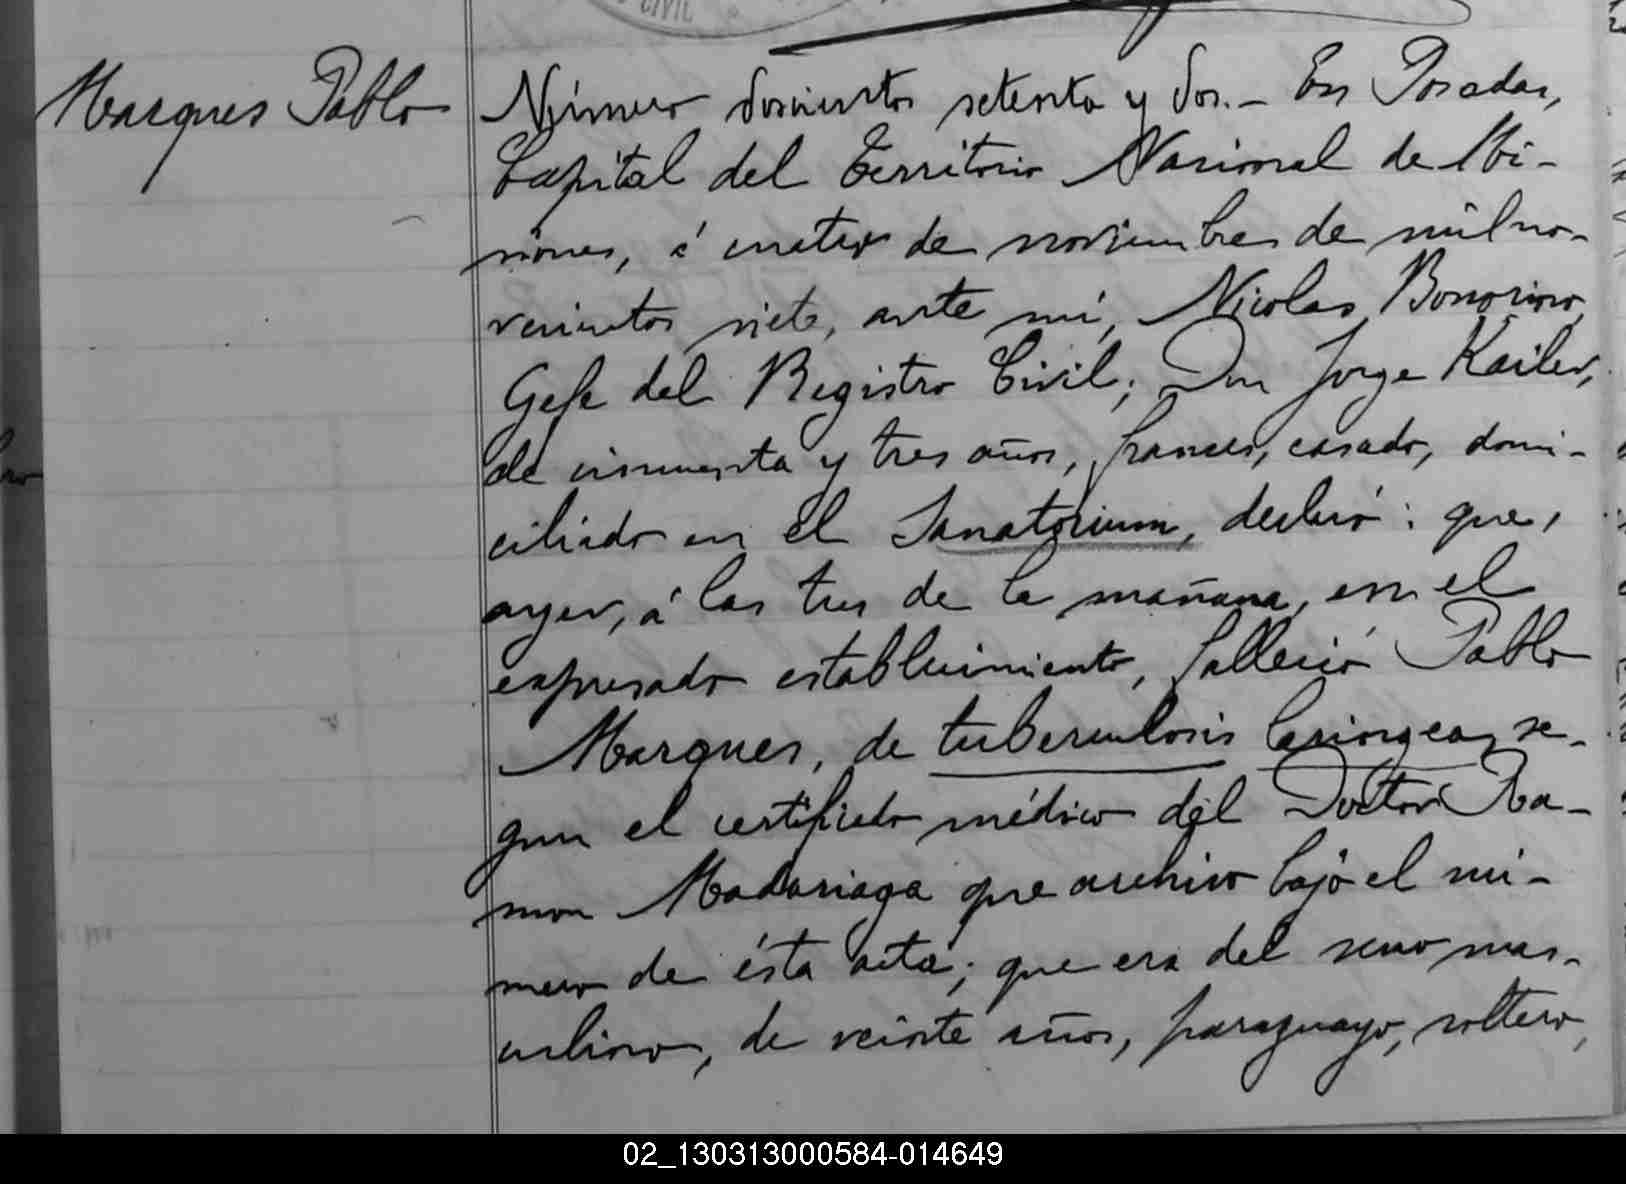 CIVIL
Marques Pablo
Número doscientos setenta y dos.- En Posadas,
Capital del Territorio Nacional de Mi-
siones, á cuatro de noviembre de mil no-
vecientos siete, ante mí, Nicolas Bonorino,
Gefe del Registro Civil; Don Jorge Kailer,
de cincuenta y tres años, frances, casado, domi-
ciliado en el Sanatorium, declaró: que,
ayer, á las tres de la mañana, en el
expresado establecimiento, falleció Pablo
Marques, de tuberculosis laringea, se-
gun el certificado médico del Doctor Ra-
mon Madariaga que archivo bajo el nú-
mero de ésta acta; que era del sexo mas-
culino, de veinte años, paraguayo, soltero,
02_130313000584-014649